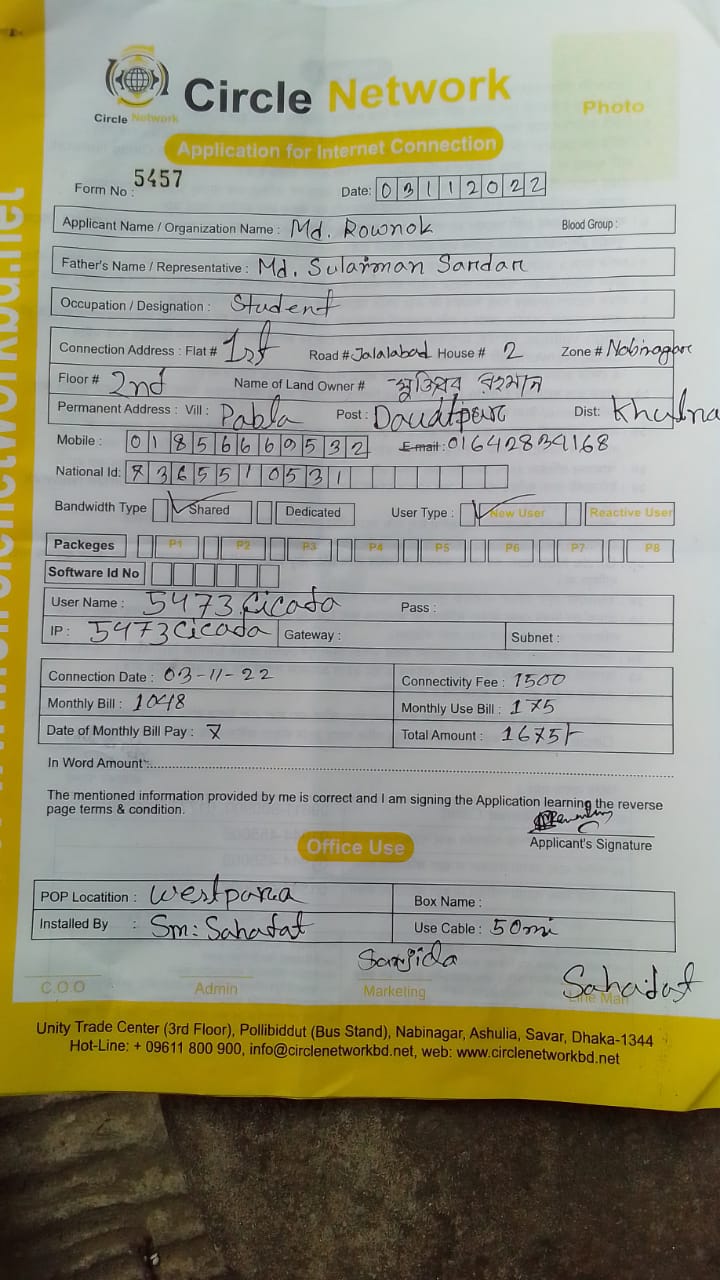 Circle Network
Circle Network
Photo
Application for Internet Connection
Form No : 5457
Date: 03112022
Applicant Name / Organization Name : Md. Rownok Blood Group :
Father's Name / Representative : Md. Sulaiman Sardar
Occupation / Designation : Student
Connection Address : Flat # 1st Road # Jalalabad House # 2 Zone # Nobinagar
Floor # 2nd Name of Land Owner # মুজিবর রহমান
Permanent Address : Vill : Pabla Post : Daudtpur Dist: Khulna
Mobile : 01856669532 Email : 01642834168
National Id: 7365510531
Bandwidth Type Shared Dedicated User Type : New User Reactive User
Packeges P1 P2 P3 P4 P5 P6 P7 P8
Software Id No
User Name : 5473.Cicada Pass :
IP : 5473Cicada Gateway : Subnet :
Connection Date : 03-11-22 Connectivity Fee : 1500
Monthly Bill : 1048 Monthly Use Bill : 175
Date of Monthly Bill Pay : 7 Total Amount : 1675/-
In Word Amount :
The mentioned information provided by me is correct and I am signing the Application learning the reverse
page terms & condition.
Applicant's Signature
Office Use
POP Locatition : Westpara Box Name :
Installed By : Sm: Sahadat Use Cable : 50mi
Sanjida
Sahadat
C.O.O Admin Marketing Line Man
Unity Trade Center (3rd Floor), Pollibiddut (Bus Stand), Nabinagar, Ashulia, Savar, Dhaka-1344
Hot-Line: + 09611 800 900, info@circlenetworkbd.net, web: www.circlenetworkbd.net